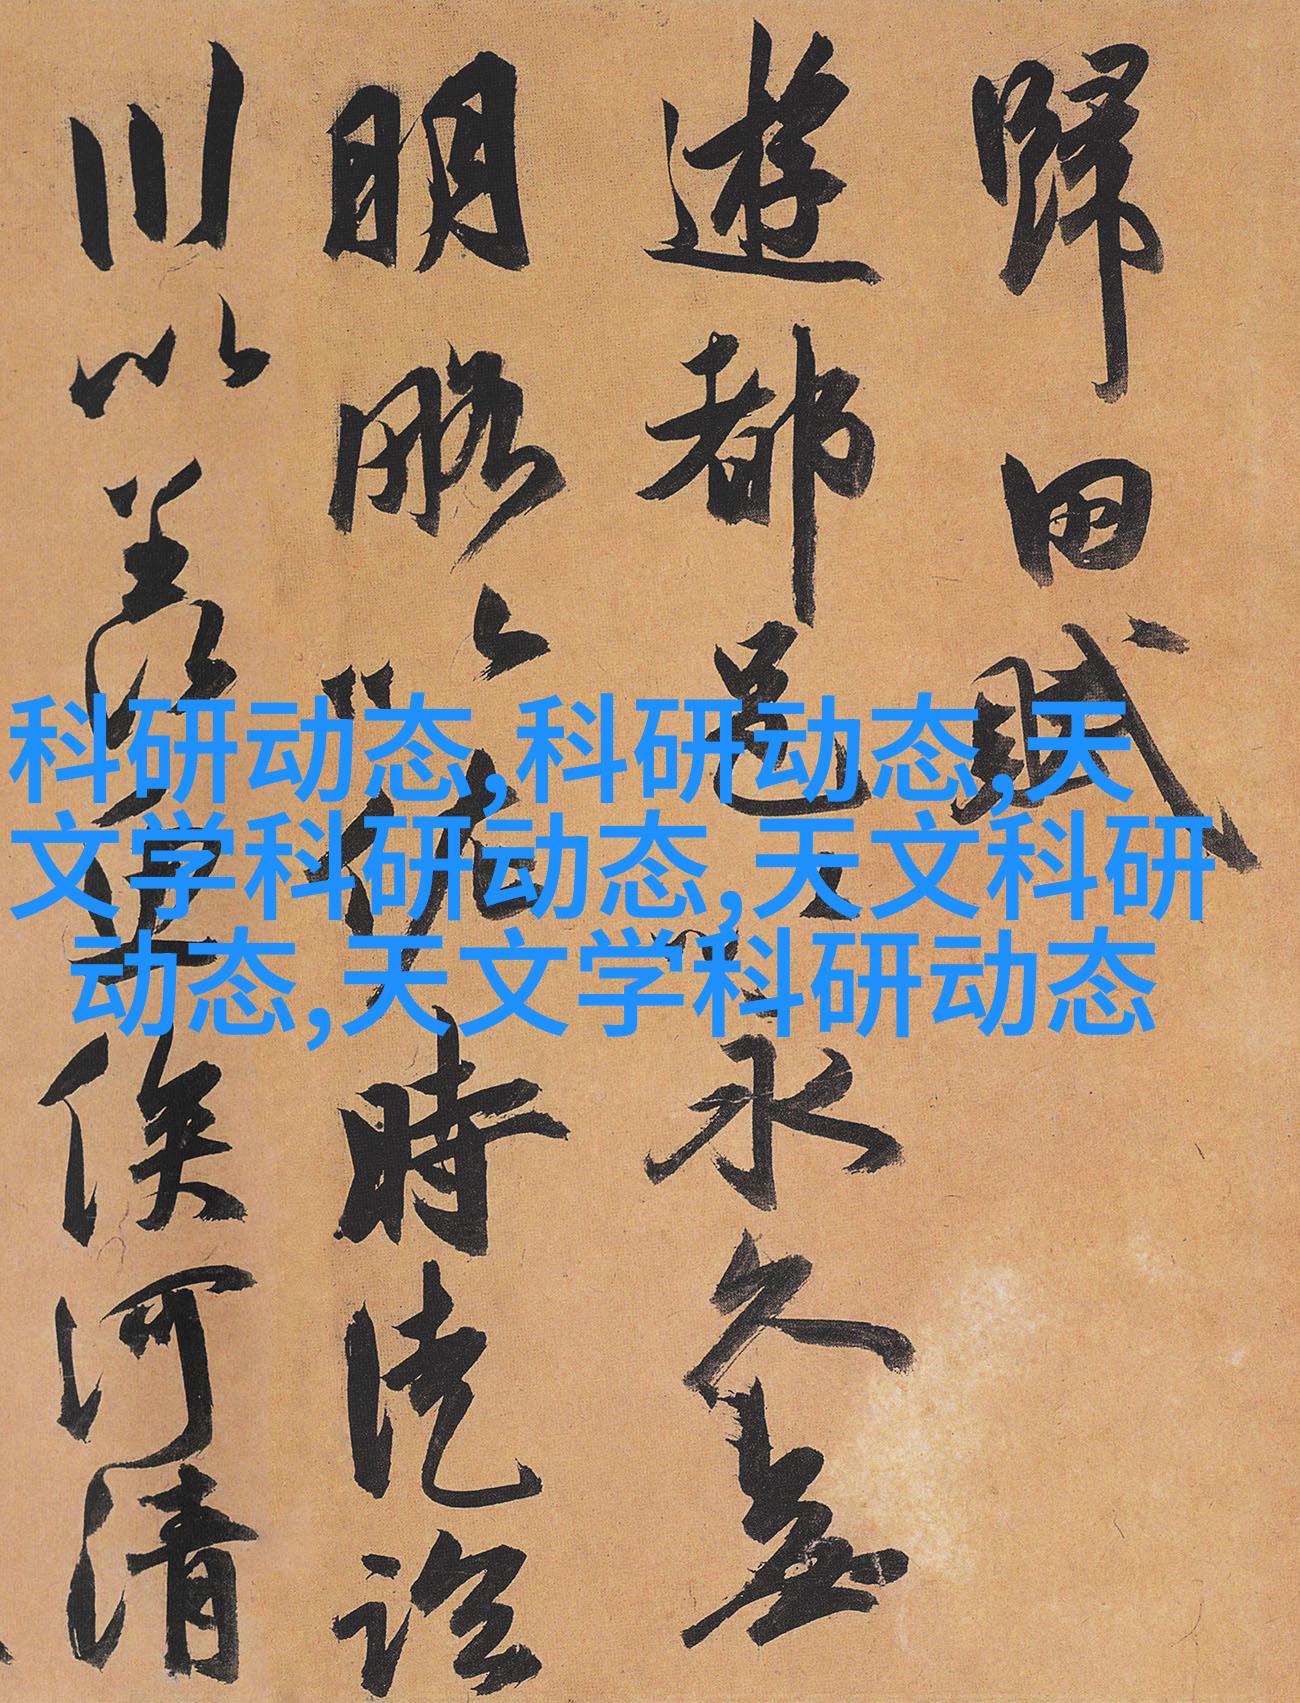 歸田賦
遊都邑以永久無
明略以佐時徒臨
川以羨魚俟河清
科研动态,科研动态,天
文学科研动态,天文科研
动态,天文学科研动态